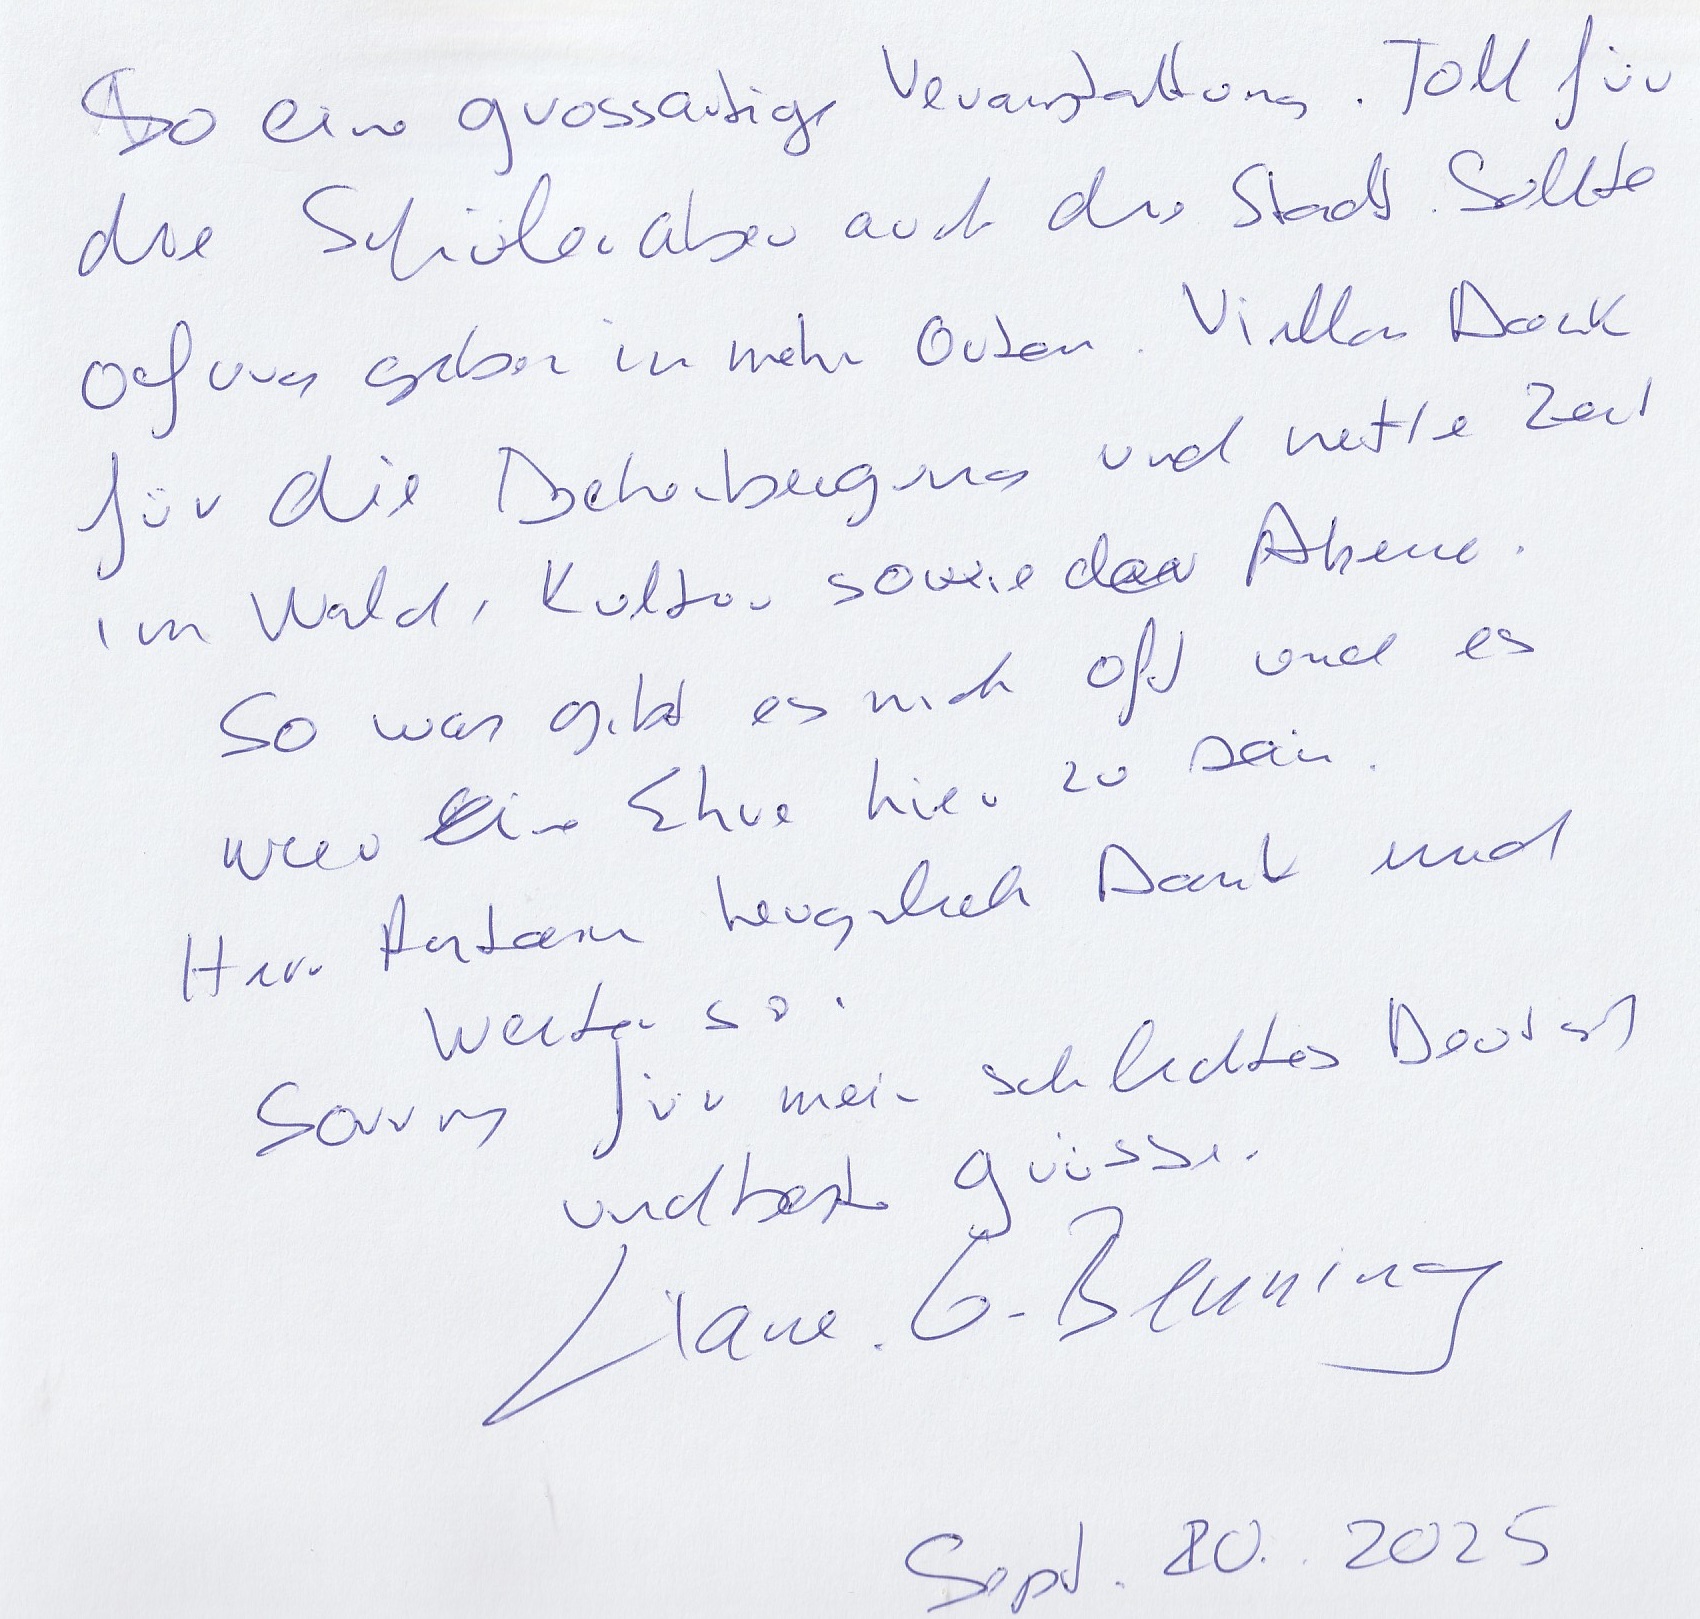 So eine grossartige Veranstaltung. Toll für
die Schüler aber auch die Stadt. Sollte
geben in mehr Orten. Viellen Dank
für die Beherbergung und nette Zeit
im Wald, Kultur sowie der Abene.
So was gibt es nich oft und es
war eine Ehre hier zu sein.
Herr herzlich Dank und
weiter so.
Sorry für mein schlechtes Deutsch
und beste grüsse.
Liane. G. Benning
Sept. 20. 2025